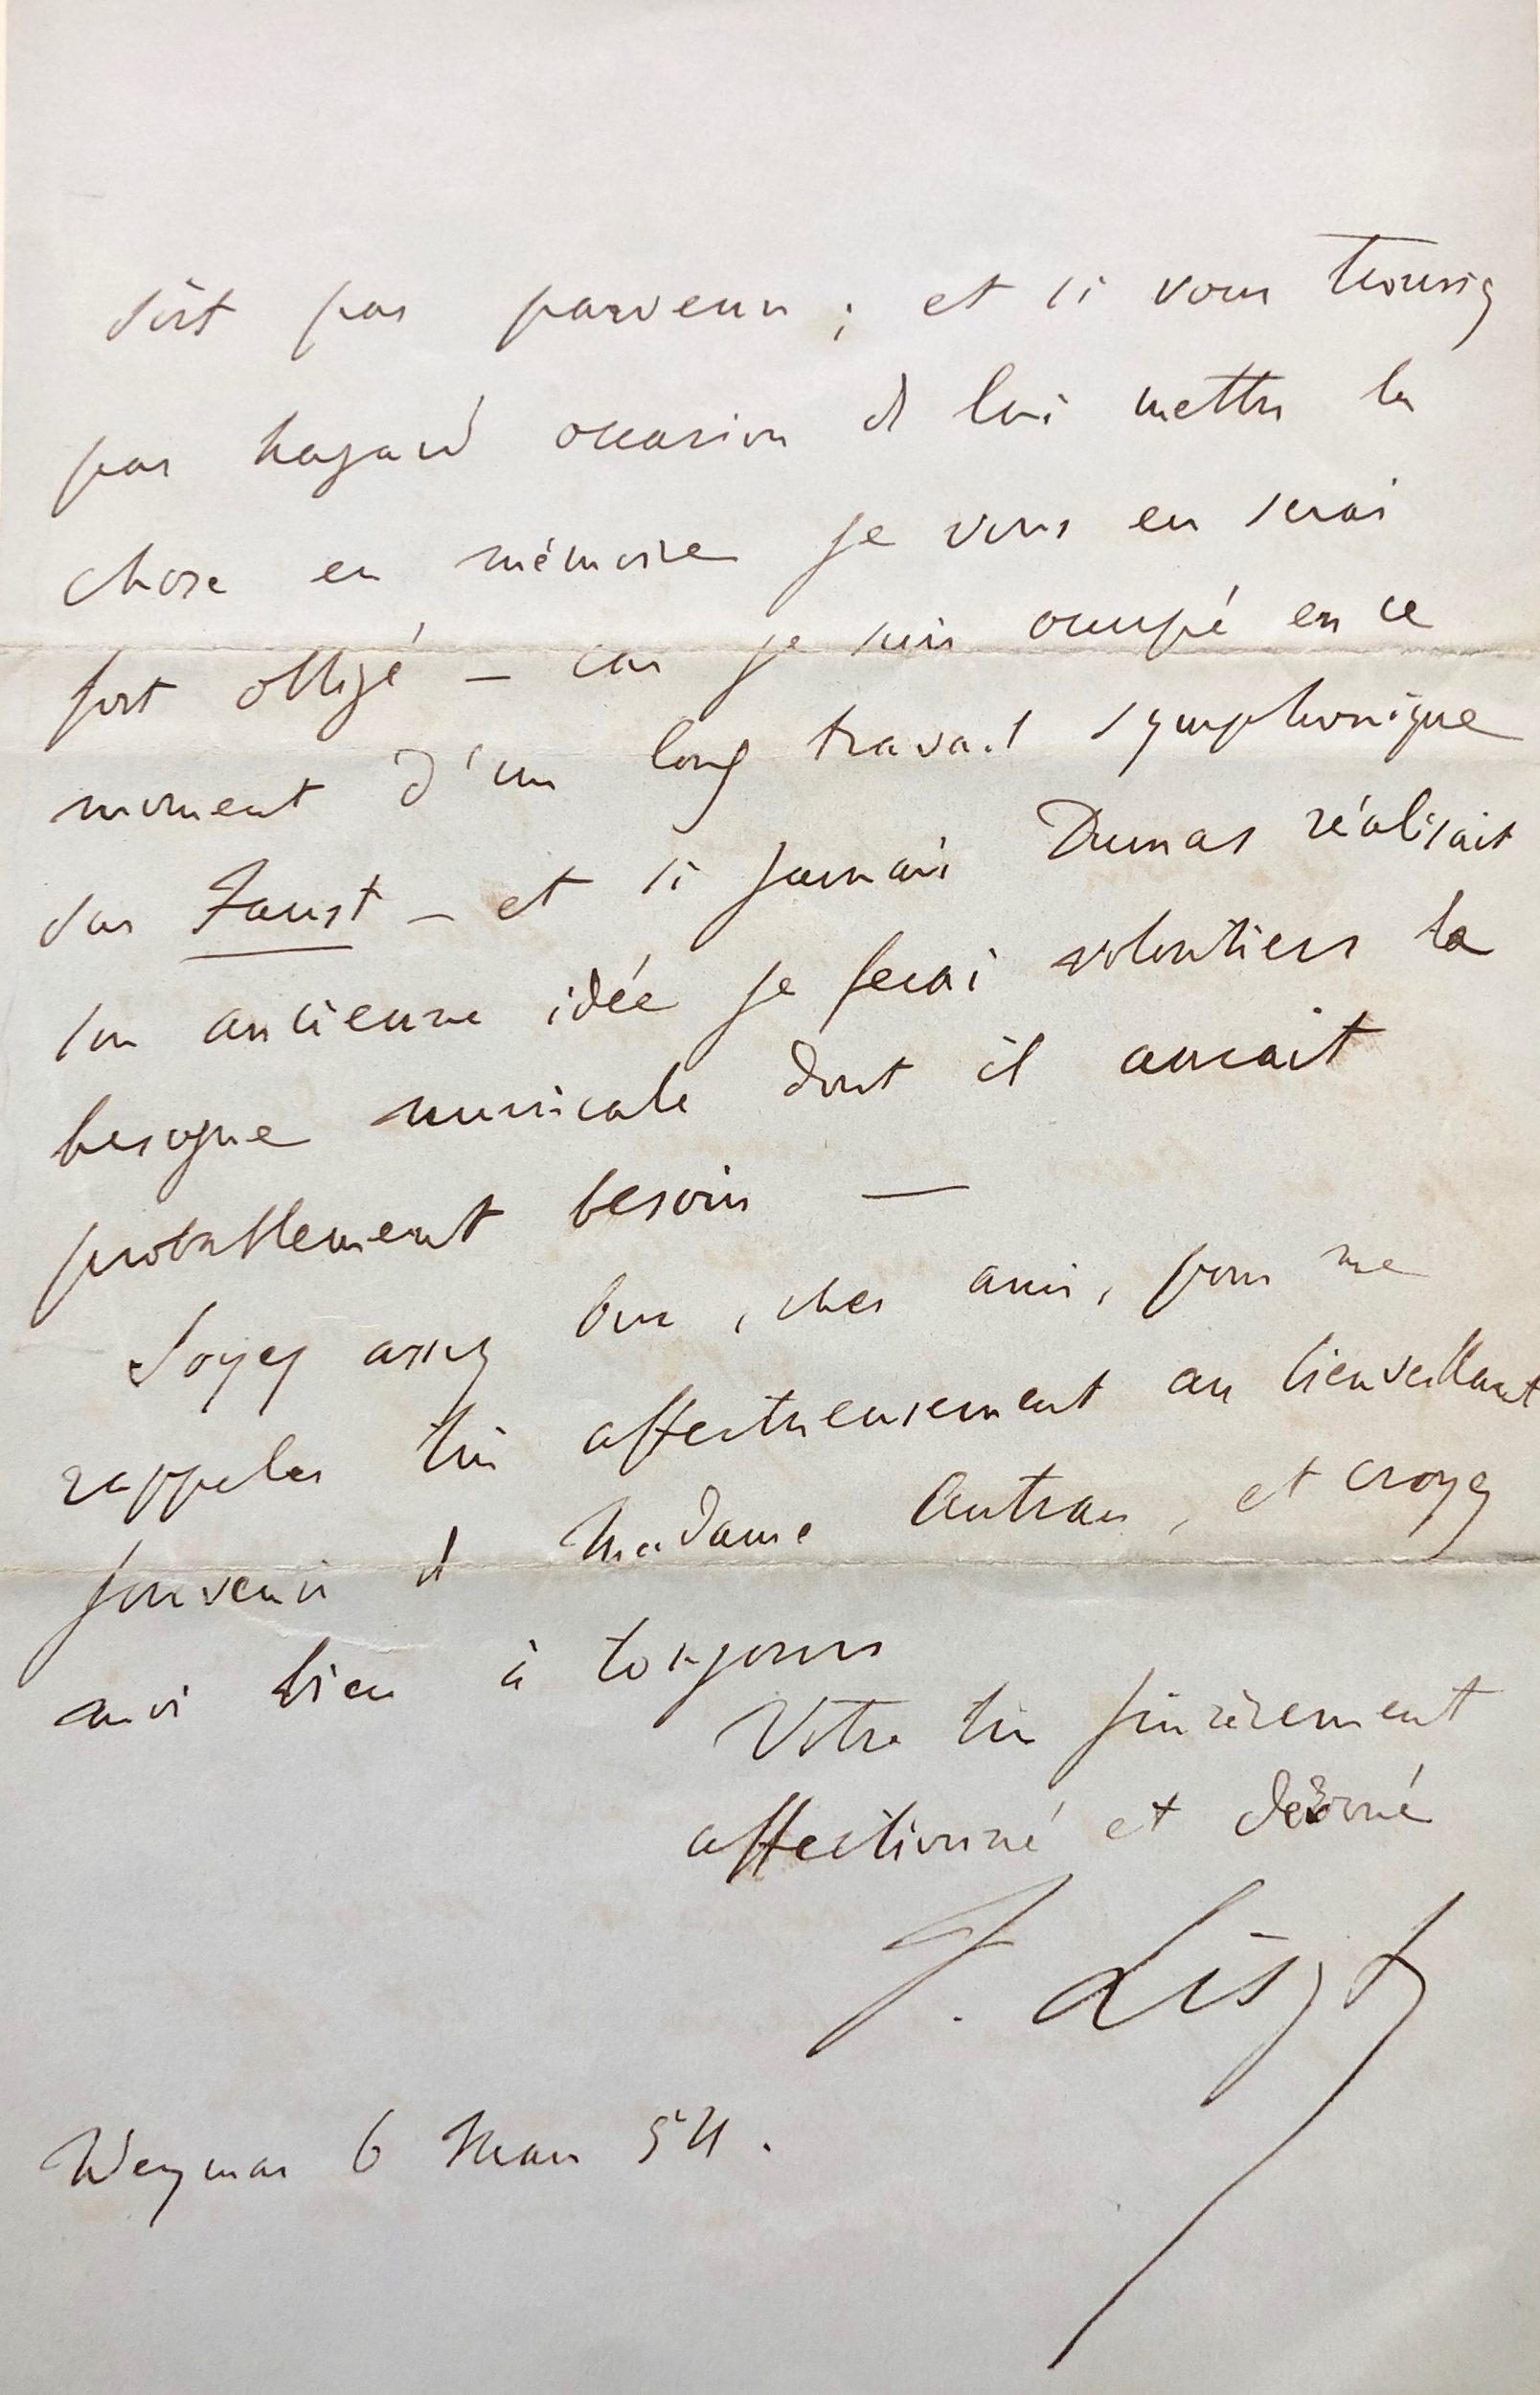 soit pas parvenu ; et si vous trouviez
par hazard occasion de lui mettre la
chose en mémoire je vous en serai
fort obligé — car je suis occupé en ce
moment d'un long travail symphonique
sur Faust — et si jamais Dumas réalisait
son ancienne idée je ferai volontiers la
besogne musicale dont il aurait
probablement besoin —
Soyez assez bon, cher ami, pour me
rappeler très affectueusement au bienveillant
souvenir de Madame Autran, et croyez
moi bien à toujours
Votre très sincèrement
affectionné et dévoué
F. Liszt
Weymar 6 Mars 54.